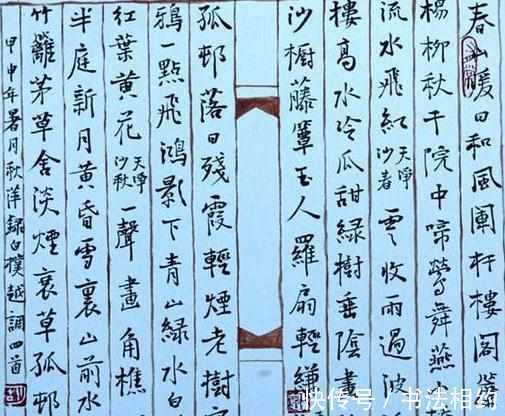 春山暖日和風闌杆樓閣簾
楊柳秋千院中啼鶯舞燕
流水飛紅 天淨沙春 雲收雨過波
樓高水冷瓜甜綠樹垂陰畫
沙櫥藤簟玉人羅扇輕縑
孤邨落日殘霞輕煙老樹
鴉一點飛鴻影下青山綠水白
紅葉黃花 天淨沙秋 一聲畫角樵
半庭新月黃昏雪裏山前水
竹籬茅草舍淡煙衰草孤邨
甲申年暑月秋洋録白樸越調四首
快传号/书法相约